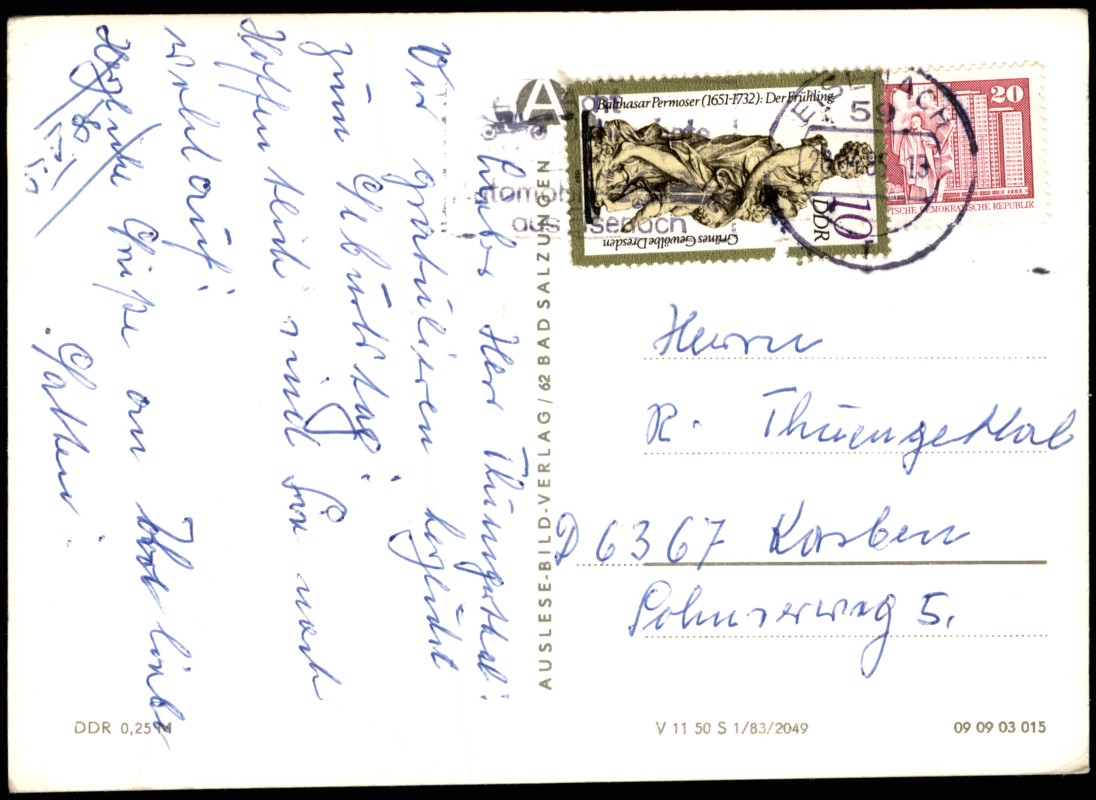 Liebes Herr Thüngethal!
Wir gratulieren herzlichst
zum Geburtstag!
Hoffentlich sind Sie noch
wohlauf!
Herzliche Grüße an Ihre liebe
Gattin!
AUSLESE-BILD-VERLAG / 62 BAD SALZUNGEN
A
Balthasar Permoser (1651-1732): Der Frühling
Grünes Gewölbe Dresden
10
DDR
20
DEUTSCHE DEMOKRATISCHE REPUBLIK
59
13
aus Eisenach
Herrn
R. Thuengethal
D 6367 Karben
5.
DDR 0,25 M
V 11 50 S 1/83/2049
09 09 03 015